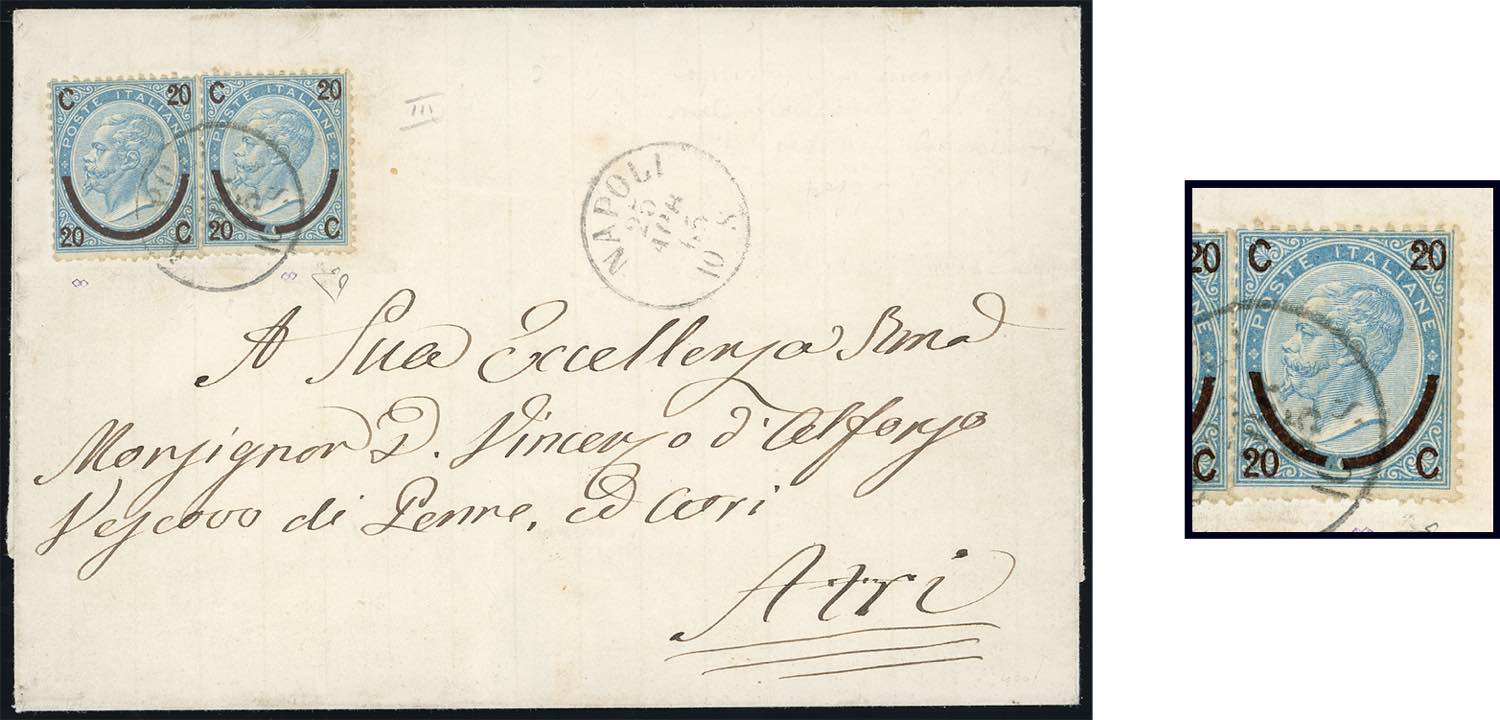 C 20 C 20
POSTE ITALIANE POSTE ITALIANE
20 C 20 C
III
NAPOLI
25
APR
65
10 S
A Sua Eccellenza Rma
Monsignor D. Vincenzo d'Alfonzo
Vescovo di Penne, ed Atri
Atri
20 C 20
POSTE ITALIANE
C 20 C